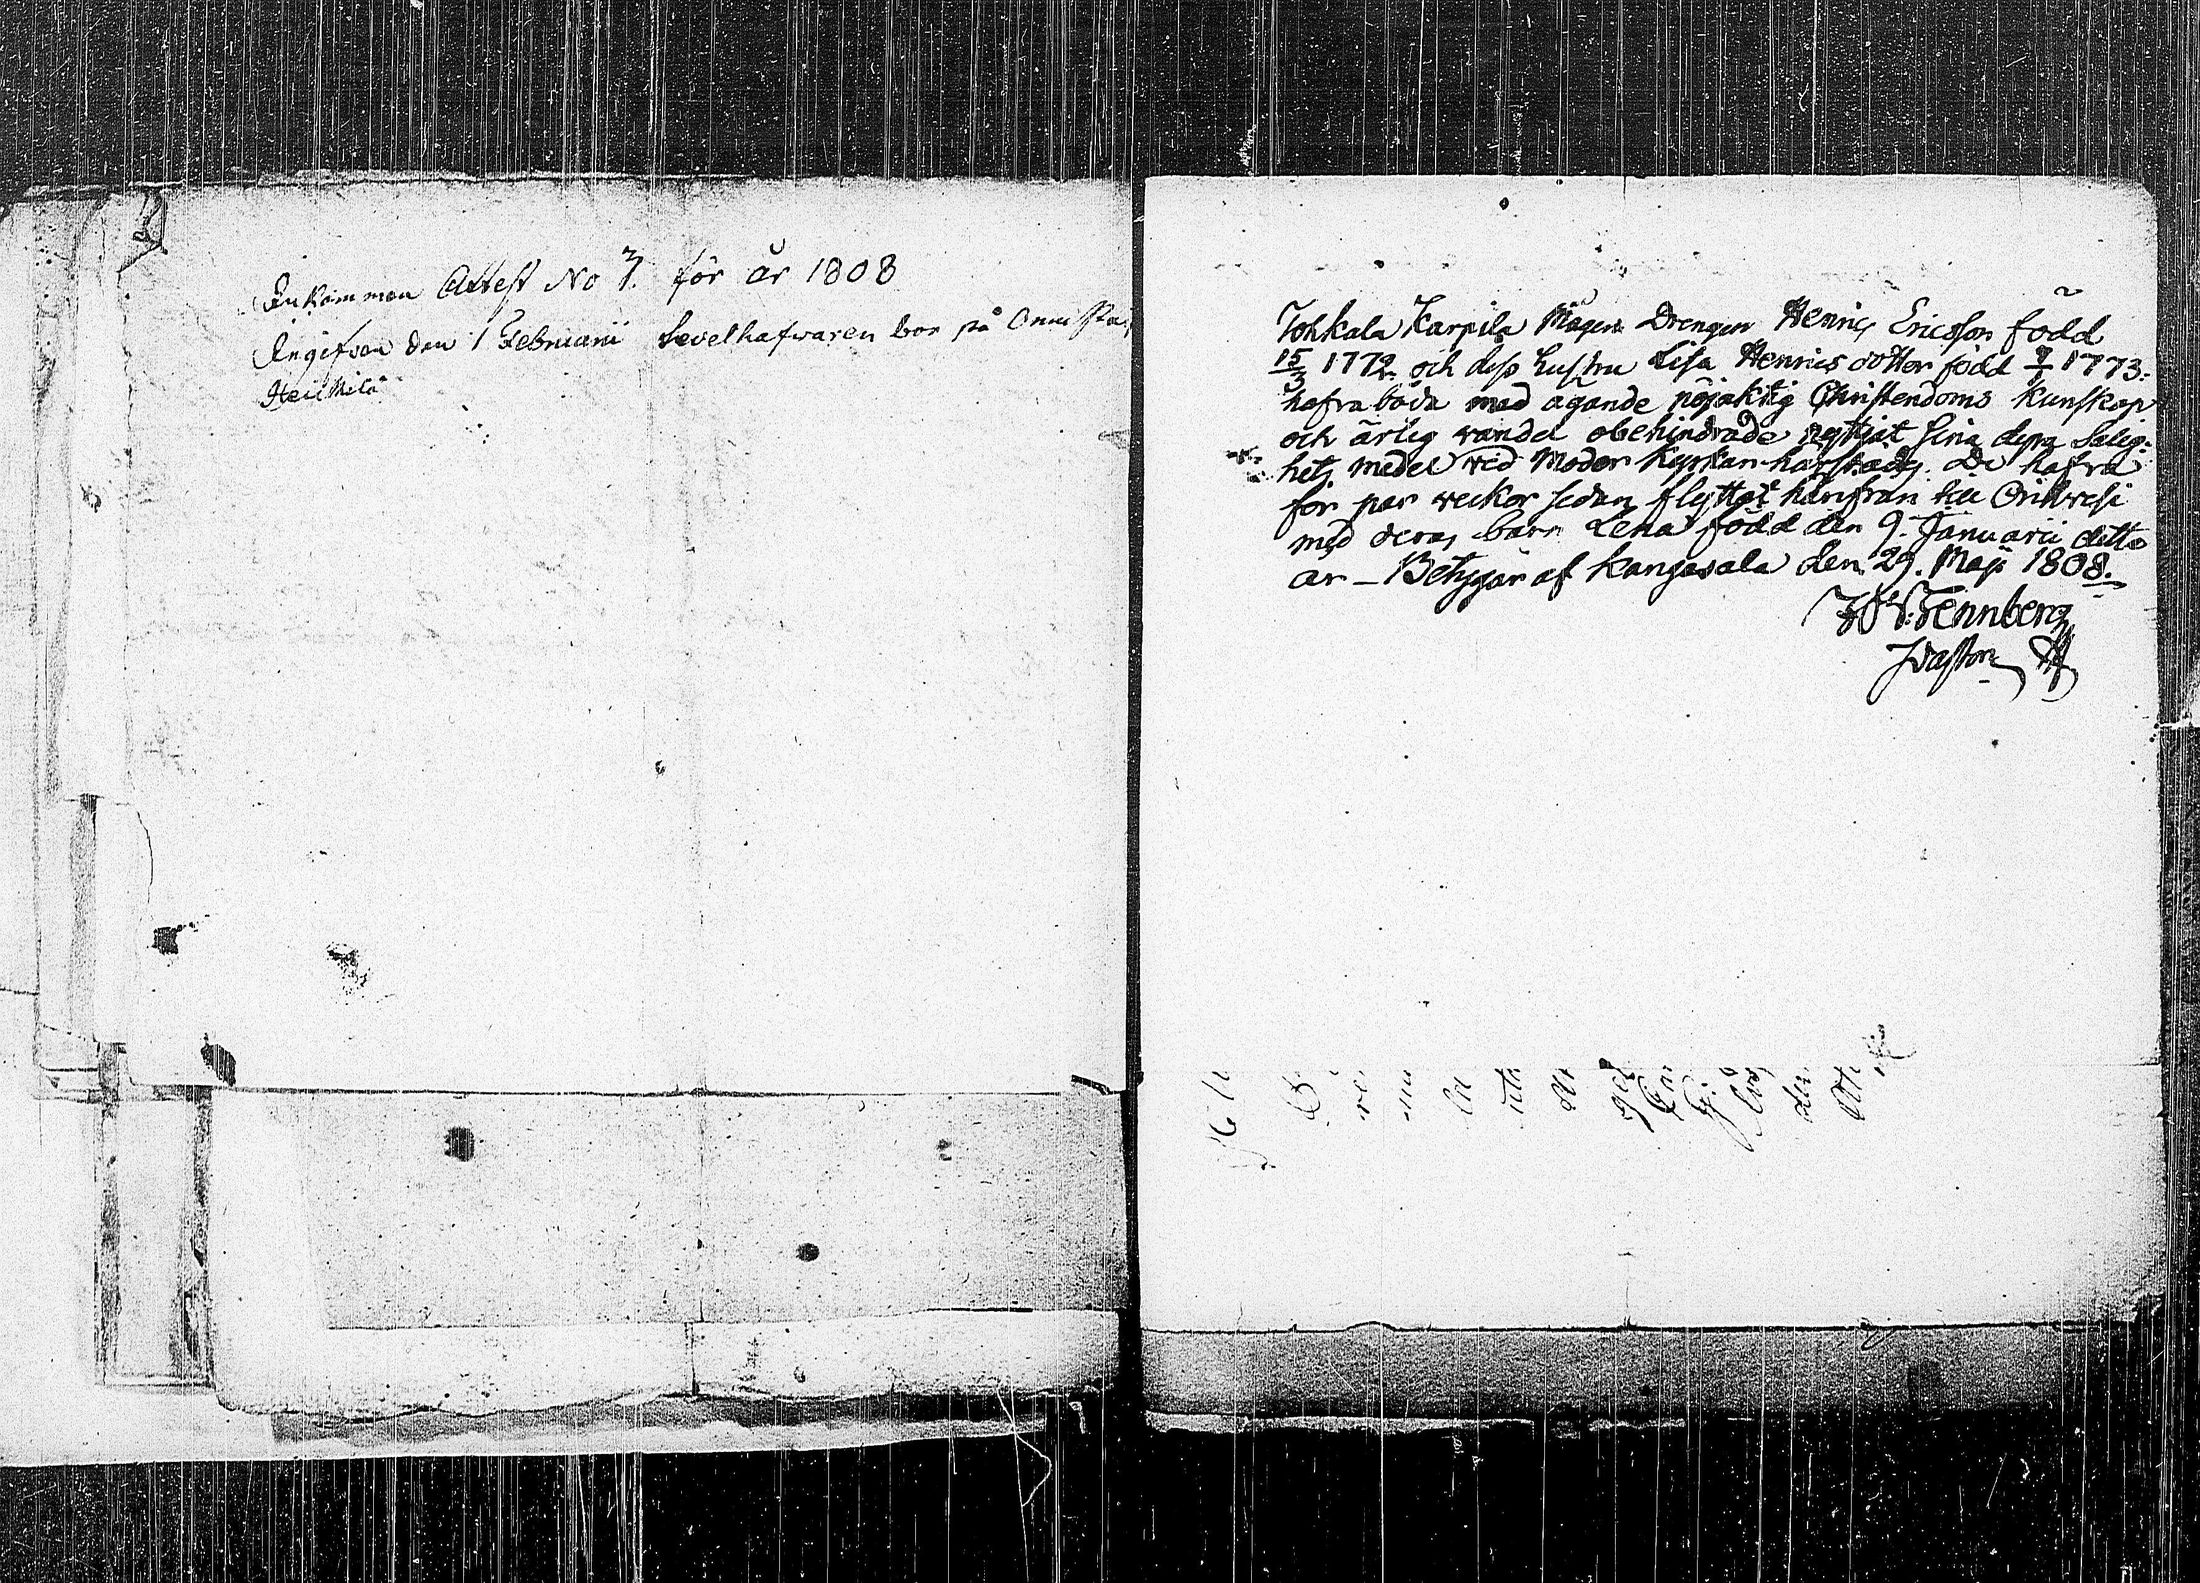 Inkommen Attest No 7. för år 1808
Ingifven den 1 Februarii Sevelhafwaren bor på
Heickilä
Tohkala Karpila Mågen Drengen Henric Ericsson född
15/3 1772 och dess hustru Lisa Henricsdotter född 9/7 1773.
hafva båda med ägande nöjaktig Christendoms kunskap
och ärlig vandel obehindrade nyttjat sina dyra Salig-
hets medel wid Moder kyrkan härstädes. De hafva
för par veckor sedan flyttat härifrån till Orihvesi
med deras barn Lena född den 9. Januarii detta
år – Betygar af Kangasala den 29. Maji 1808.
Tennberg
Pastor